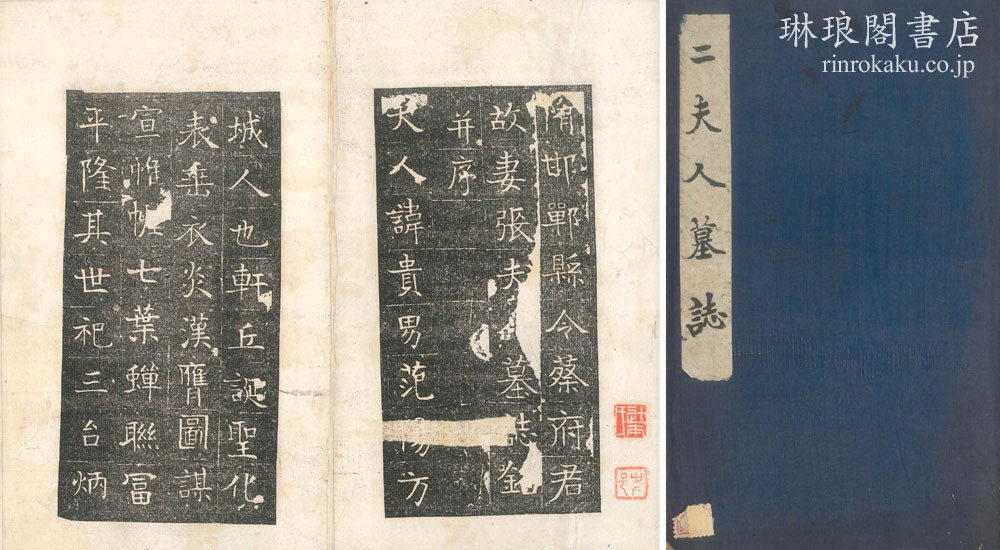 琳琅閣書店
rinrokaku.co.jp
二夫人墓誌
隋邯鄲縣令蔡府君
故妻張夫墓誌銘
并序
夫人諱貴男范陽方
城人也軒丘誕聖化
表垂衣炎漢膺圖謀
宣帷幄七葉蟬聯冨
平隆其世祀三台炳